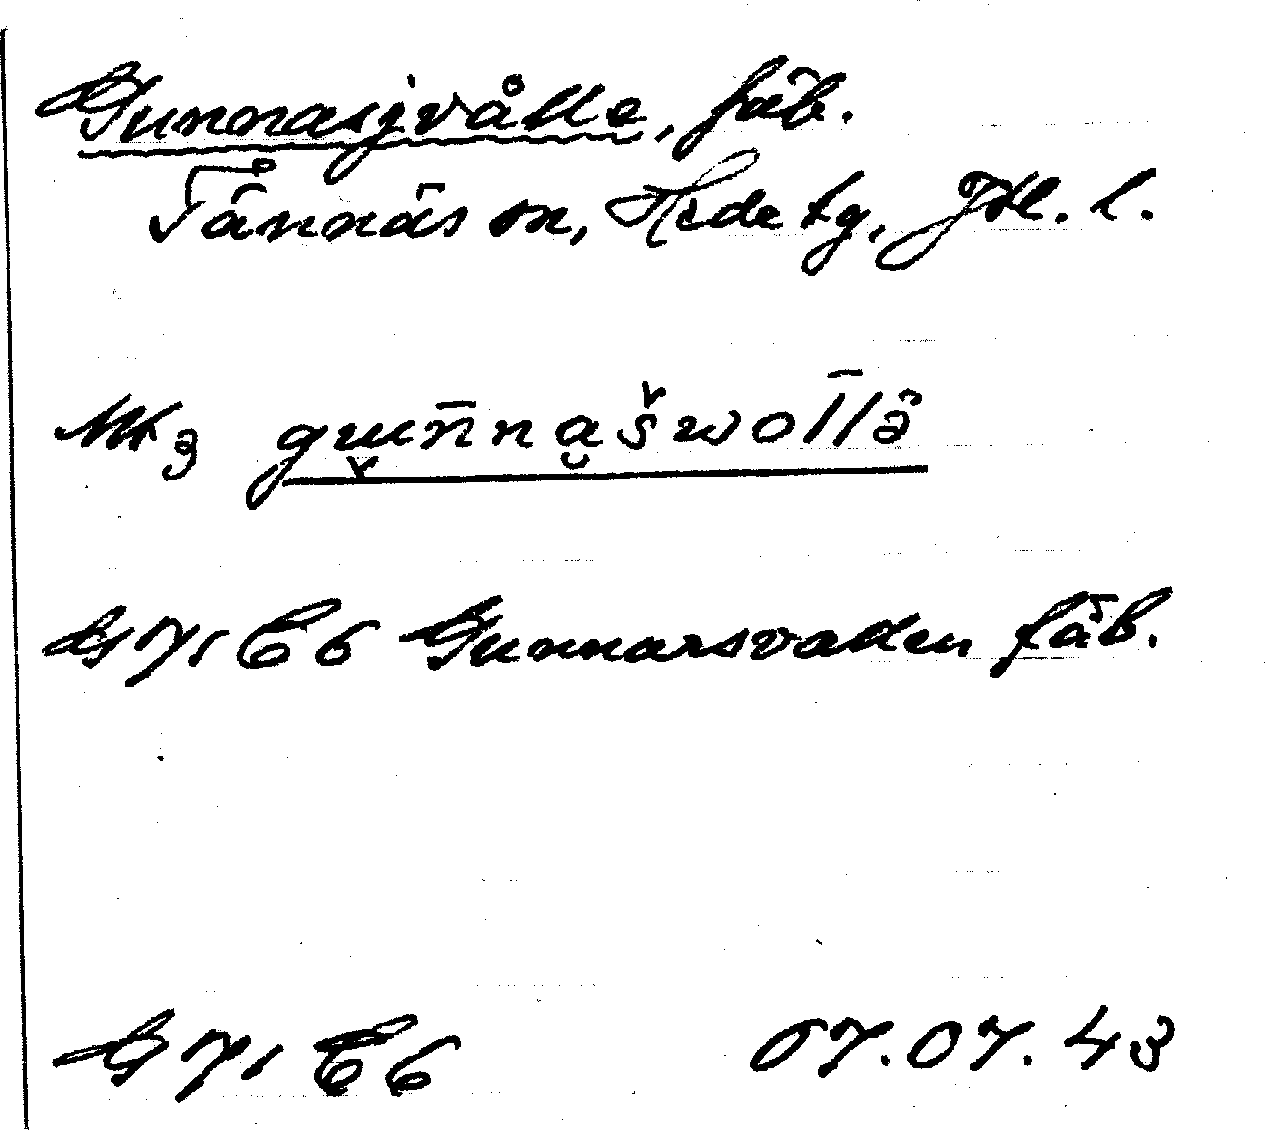 Gunnasjvålle, fäb.
Tännäs sn, Hede tg, Jtl. l.
gun̄našwol̄lâ
G 71 C6 Gunnarsvallen fäb.
G 71 C6 07.07.43